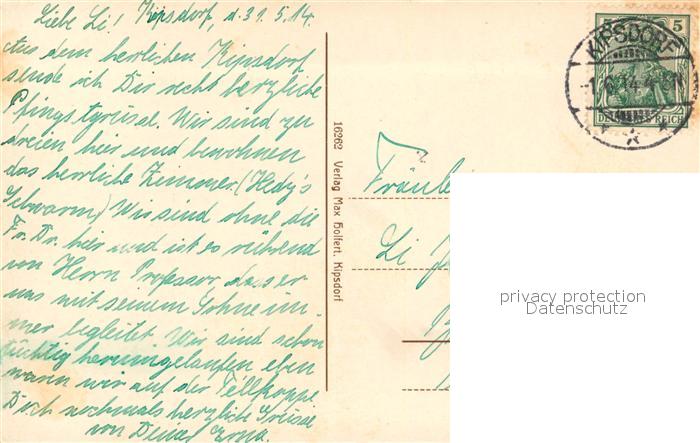 Liebe Li! Kipsdorf, d. 31.5.14.
Aus dem herrlichen Kipsdorf
sende ich Dir recht herzliche
Pfingstgrüsse. Wir sind zu
dreien hier und bewohnen
das herrliche Zimmer. (Hedy's
Schwarm) Wir sind ohne die
Fr. Dr. hier und ist es rührend
von Herrn Professor, dass er
uns mit seinem Sohne im-
mer begleitet. Wir sind schon
tüchtig herumgelaufen eben
waren wir auf der Tellkoppe
Doch nochmals herzliche Grüsse
von Deiner Erna.
16262 Verlag Max Holfert, Kipsdorf
Fräulei
Li
KIPSDORF
-1.6.14.
5
DEUTSCHES REICH
privacy protection
Datenschutz